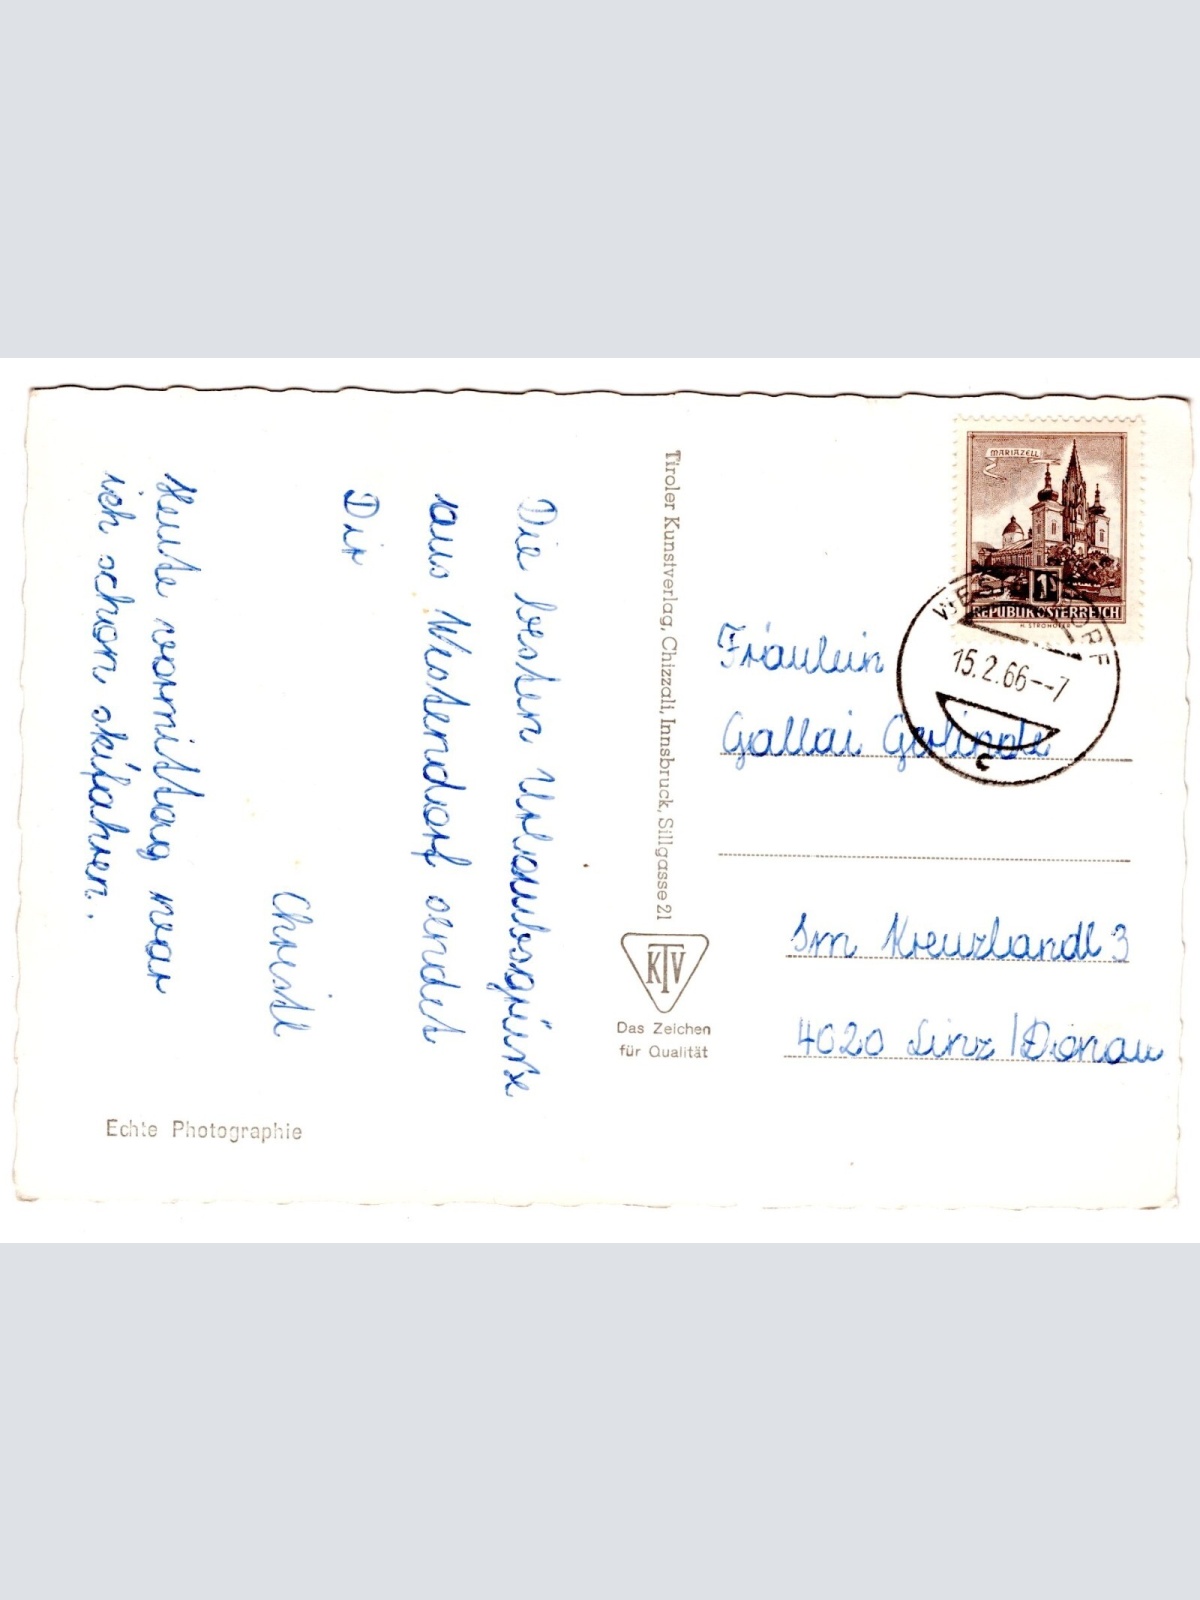 Die besten Urlaubsgrüße
aus Westendorf sendet
Dir
Christl
Heute vormittag war
ich schon skifahren.
Echte Photographie
Tiroler Kunstverlag, Chizzali, Innsbruck, Sillgasse 21
KTV
Das Zeichen
für Qualität
MARIAZELL
1S
REPUBLIK ÖSTERREICH
H. STROHOFER
WESTENDORF
15.2.66--7
Fräulein
Gallai Gerlinde
Im Kreuzlandl 3
4020 Linz/Donau